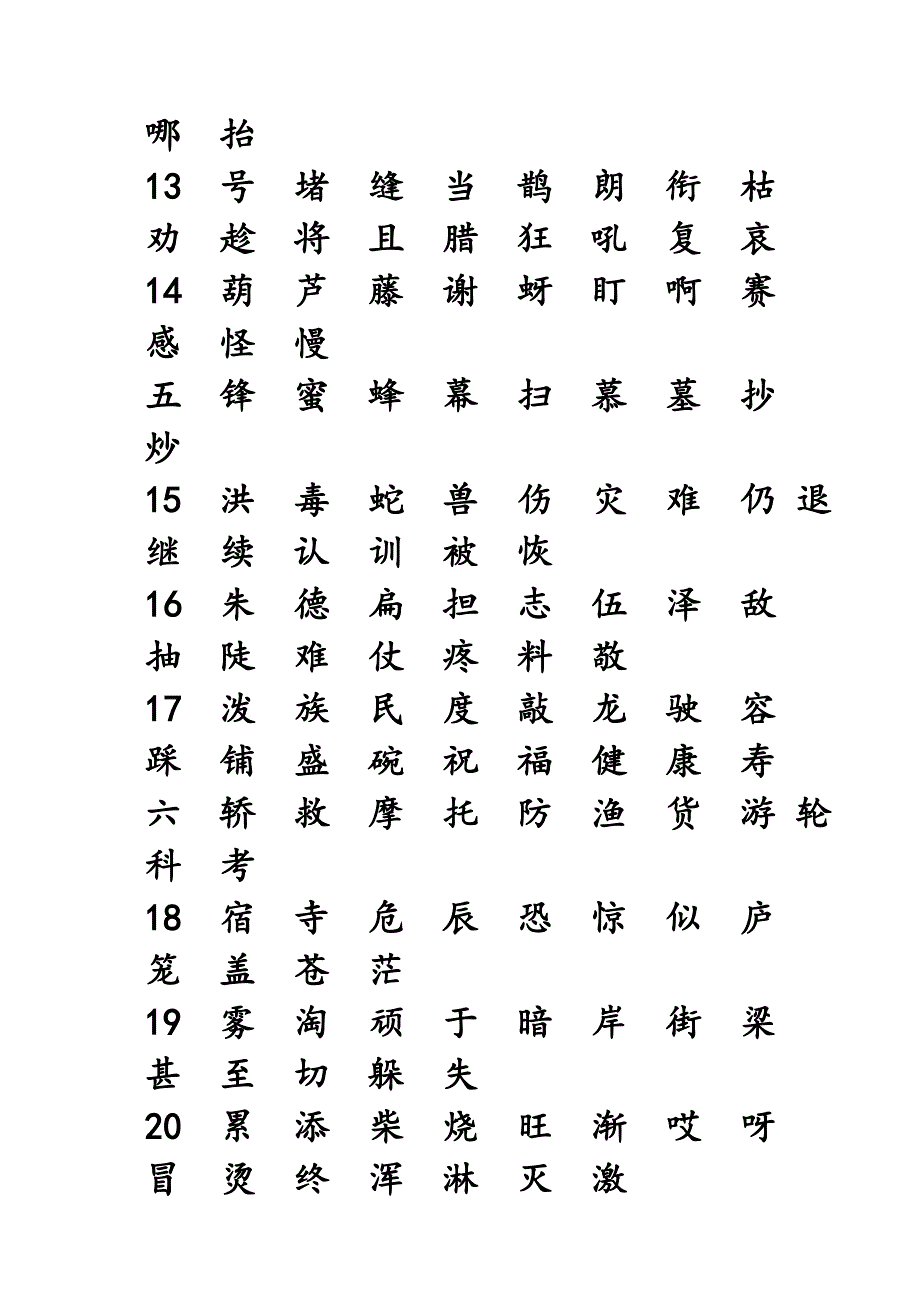 哪 抬
13 号 堵 缝 当 鹊 朗 衔 枯
劝 趁 将 且 腊 狂 吼 复 哀
14 葫 芦 藤 谢 蚜 盯 啊 赛
感 怪 慢
五 锋 蜜 蜂 幕 扫 慕 墓 抄
炒
15 洪 毒 蛇 兽 伤 灾 难 仍 退
继 续 认 训 被 恢
16 朱 德 扁 担 志 伍 泽 敌
抽 陡 难 仗 疼 料 敬
17 泼 族 民 度 敲 龙 驶 容
踩 铺 盛 碗 祝 福 健 康 寿
六 轿 救 摩 托 防 渔 货 游 轮
科 考
18 宿 寺 危 辰 恐 惊 似 庐
笼 盖 苍 茫
19 雾 淘 顽 于 暗 岸 街 梁
甚 至 切 躲 失
20 累 添 柴 烧 旺 渐 哎 呀
冒 烫 终 浑 淋 灭 激